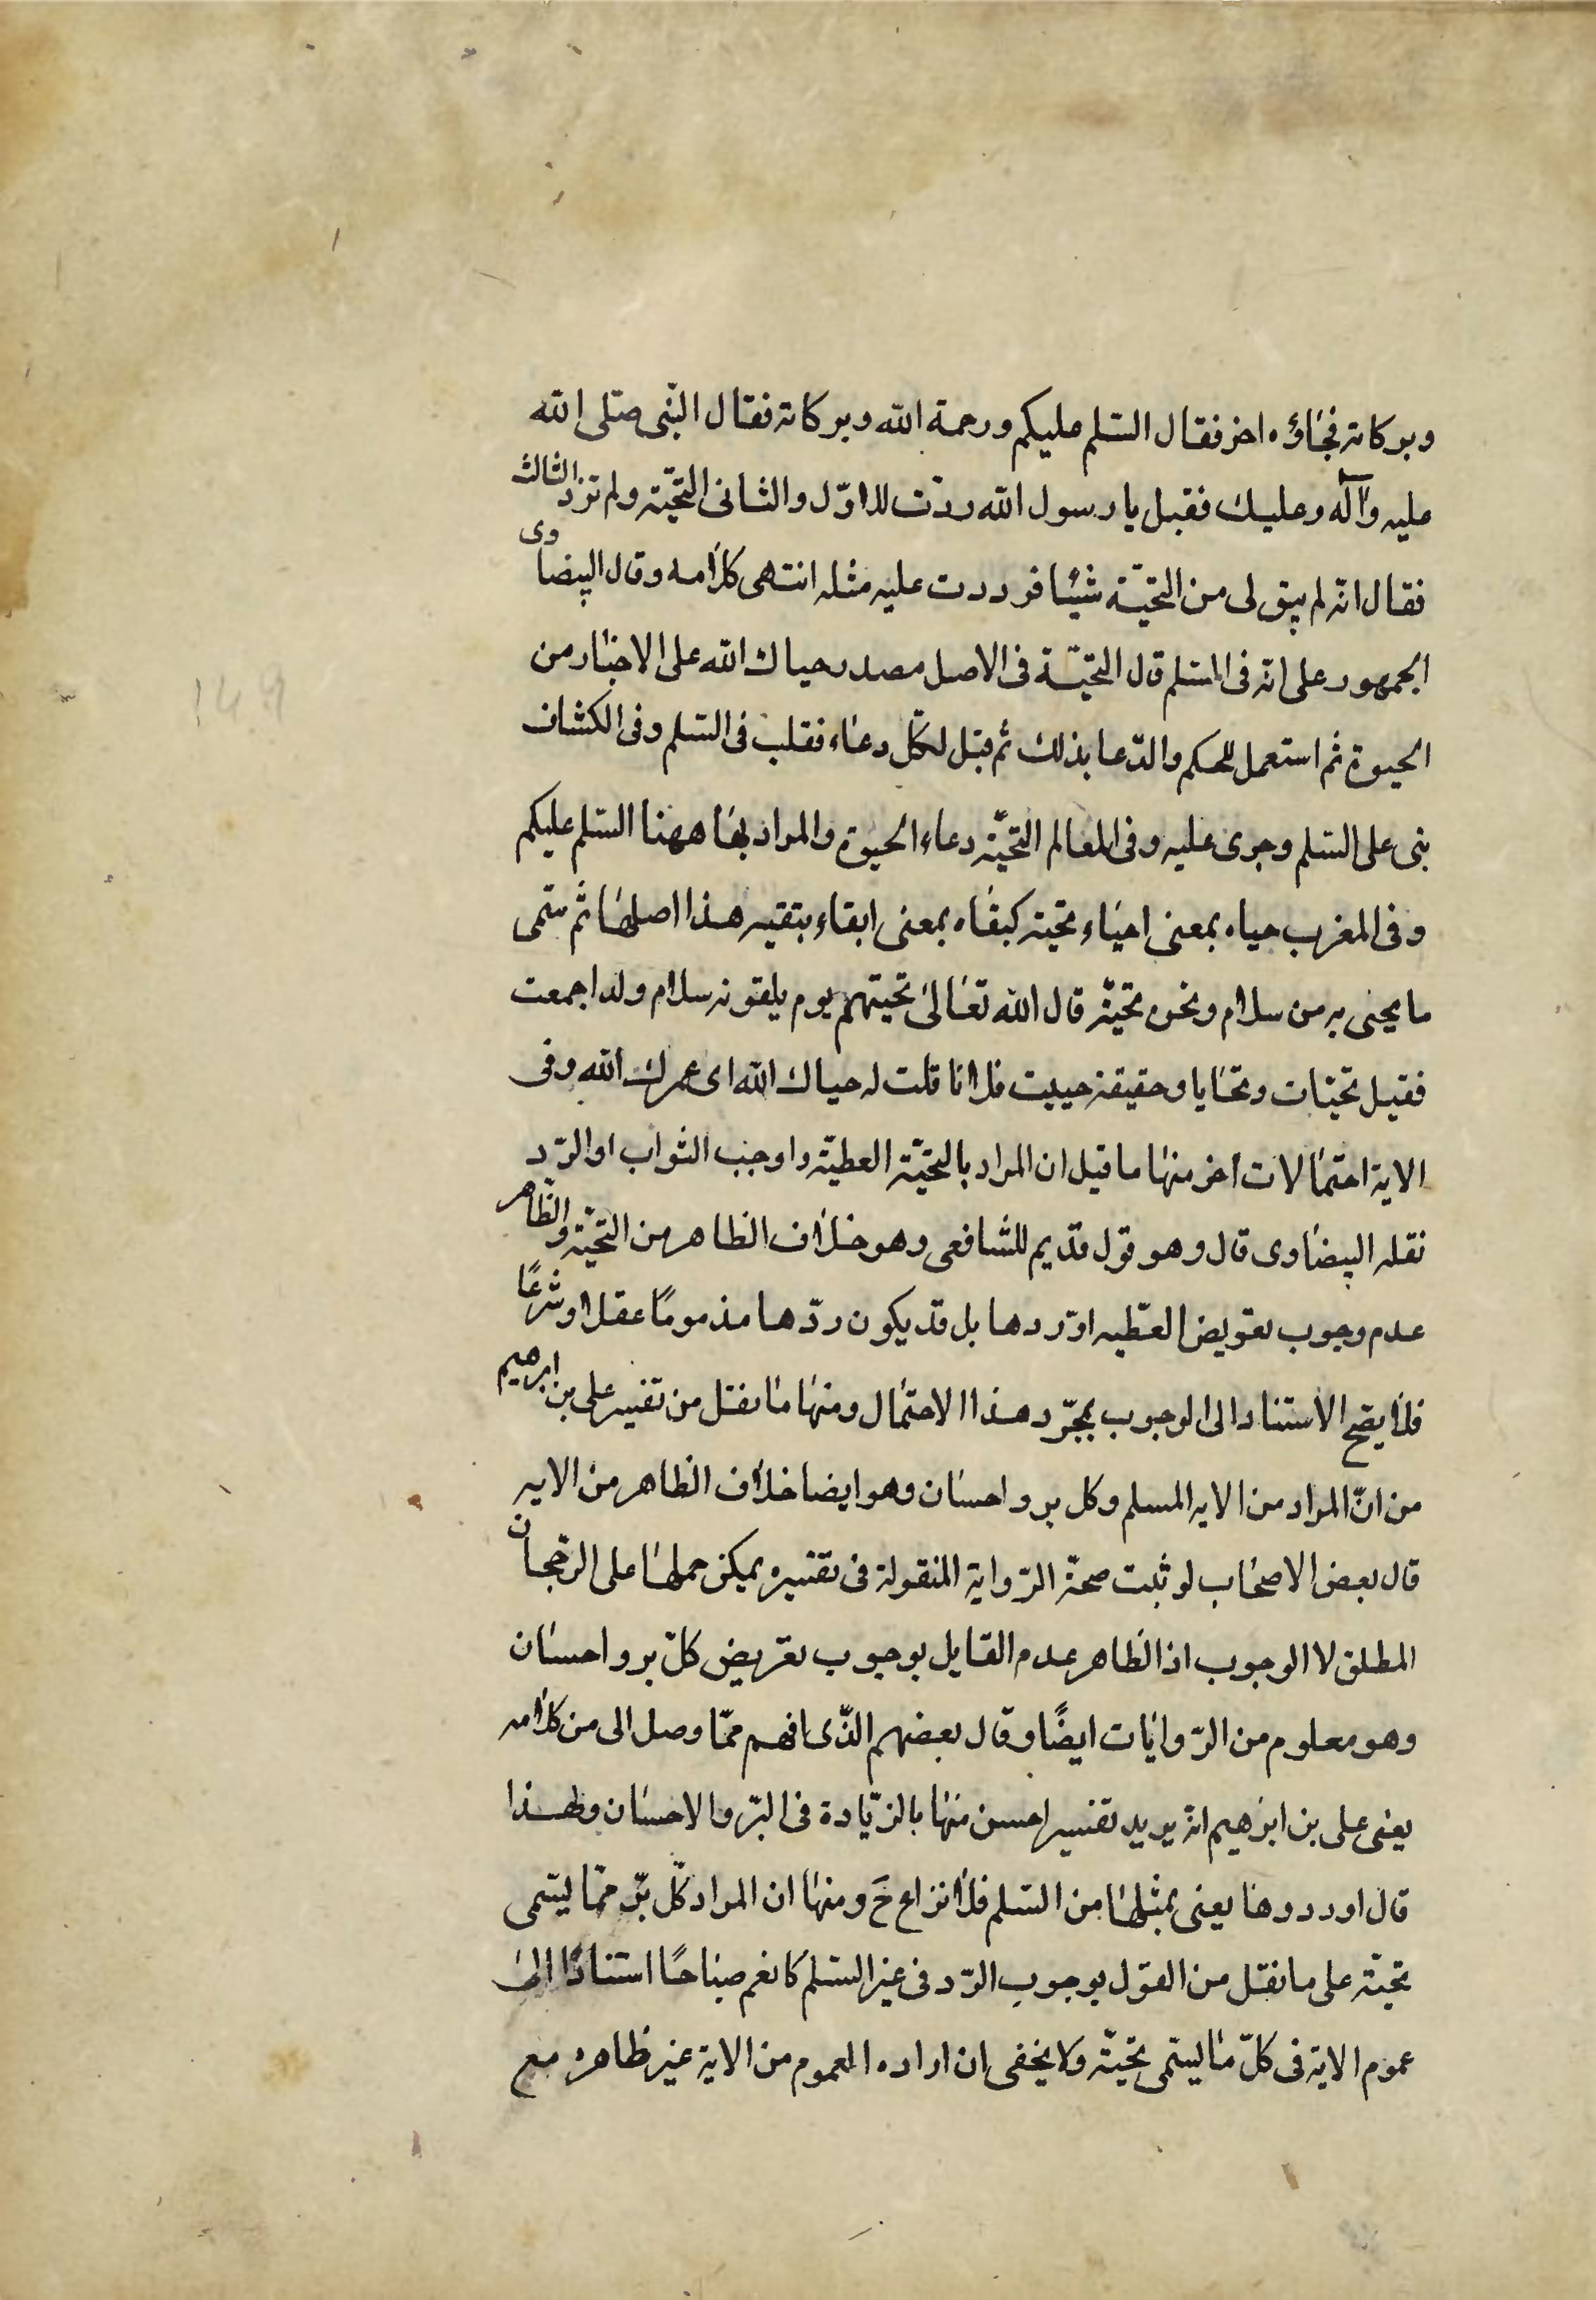 وبركاته فجاؤه اخر فقال السّلم عليكم ورحمة الله وبركاته فقال النّبى صلّى الله
عليه وآله وعليك فقيل يا رسول الله ردّت للاوّل والثانى التحيّة ولم تزد الثالث
فقال انّه لم يبق لى من التحيّة شيئا فرددت عليه مثله انتهى كلامه وقال البيضاوى
الجمهور على انّه فى السّلم قال التحيّة فى الاصل مصدر حياك الله على الاخبار من
الحيوة ثم استعمل للحكم والدّعا بذلك ثم قيل لكلّ دعاء فقلب فى السّلم وفى الكشاف
بنى على السّلم وجرى عليه وفى المعالم التحيّة دعاء الحيوة والمراد بها ههنا السّلم عليكم
وفى المغرب حياه بمعنى احياء تحيّة كبقاه بمعنى ابقاء بتقيه هذا اصلها ثم سمّى
ما يحيى به من سلام ونحوه تحيّة قال الله تعالى تحيتهم يوم يلقونه سلام ولذا جمعت
فقيل تحيّات وتحايا وحقيقة حييت فلانا قلت له حياك الله اى عمرك الله وفى
الاية احتمالات أخر منها ما قيل ان المراد بالتحيّة العطيّة واوجب الثواب او الرّد
نقله البيضاوى قال وهو قول قديم للشافعى وهو خلاف الظاهر من التحيّة والظاهر
عدم وجوب تعويض العطّيه او ردها بل قد يكون ردّها مذمومًا عقلا وشرعًا
فلا يصح الاستناد الى الوجوب بمجّرد هذا الاحتمال ومنها ما نقل من تفسير على بن ابرهيم
من انّ المراد من الايه السلم وكل بر واحسان وهو ايضا خلاف الظاهر من الايه
قال بعض الاصحاب لو ثبت صحة الرّواية المنقولة فى تفسيره يمكن حملها على الرجحان
المطلق لا الوجوب اذ الظاهر عدم القايل بوجوب تعريض كلّ بر واحسان
وهو معلوم من الرّوايات ايضًا وقال بعضهم الذّى افهم ممّا وصل الى من كلامه
يعنى على بن ابرهيم انّه يريد تفسير احسن منها بالزّيادة فى البرّ والاحسان ولهذا
قال او ردوها يعنى بمثلها من السّلم فلا نزاع حَ ومنها ان المراد كلّ برّ ممّا يسّمى
تحيّة على ما نقل من القول بوجوب الرّد فى غير السّلم كانعم صباحًا استنادًا الى
عموم الاية فى كلّ ما يسمّى تحيّة ولا يخفى ان اراده العموم من الاية غير ظاهره مع
149